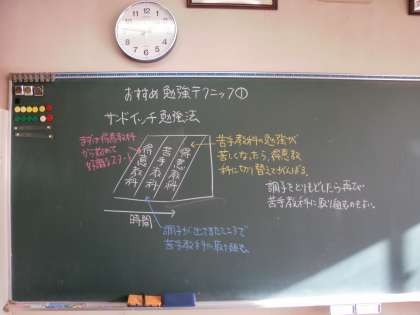 おすすめ勉強テクニック①
サンドイッチ勉強法
まずは得意教科
から始めて
好調なスタート
得意教科
苦手教科
得意教科
苦手教科の勉強が
苦しくなったら、得意教
科に切り替えてがんばる。
調子をとりもどしたら再び
苦手教科に取り組むのもよい。
時間
調子が出てきたところで
苦手教科に取り組む。